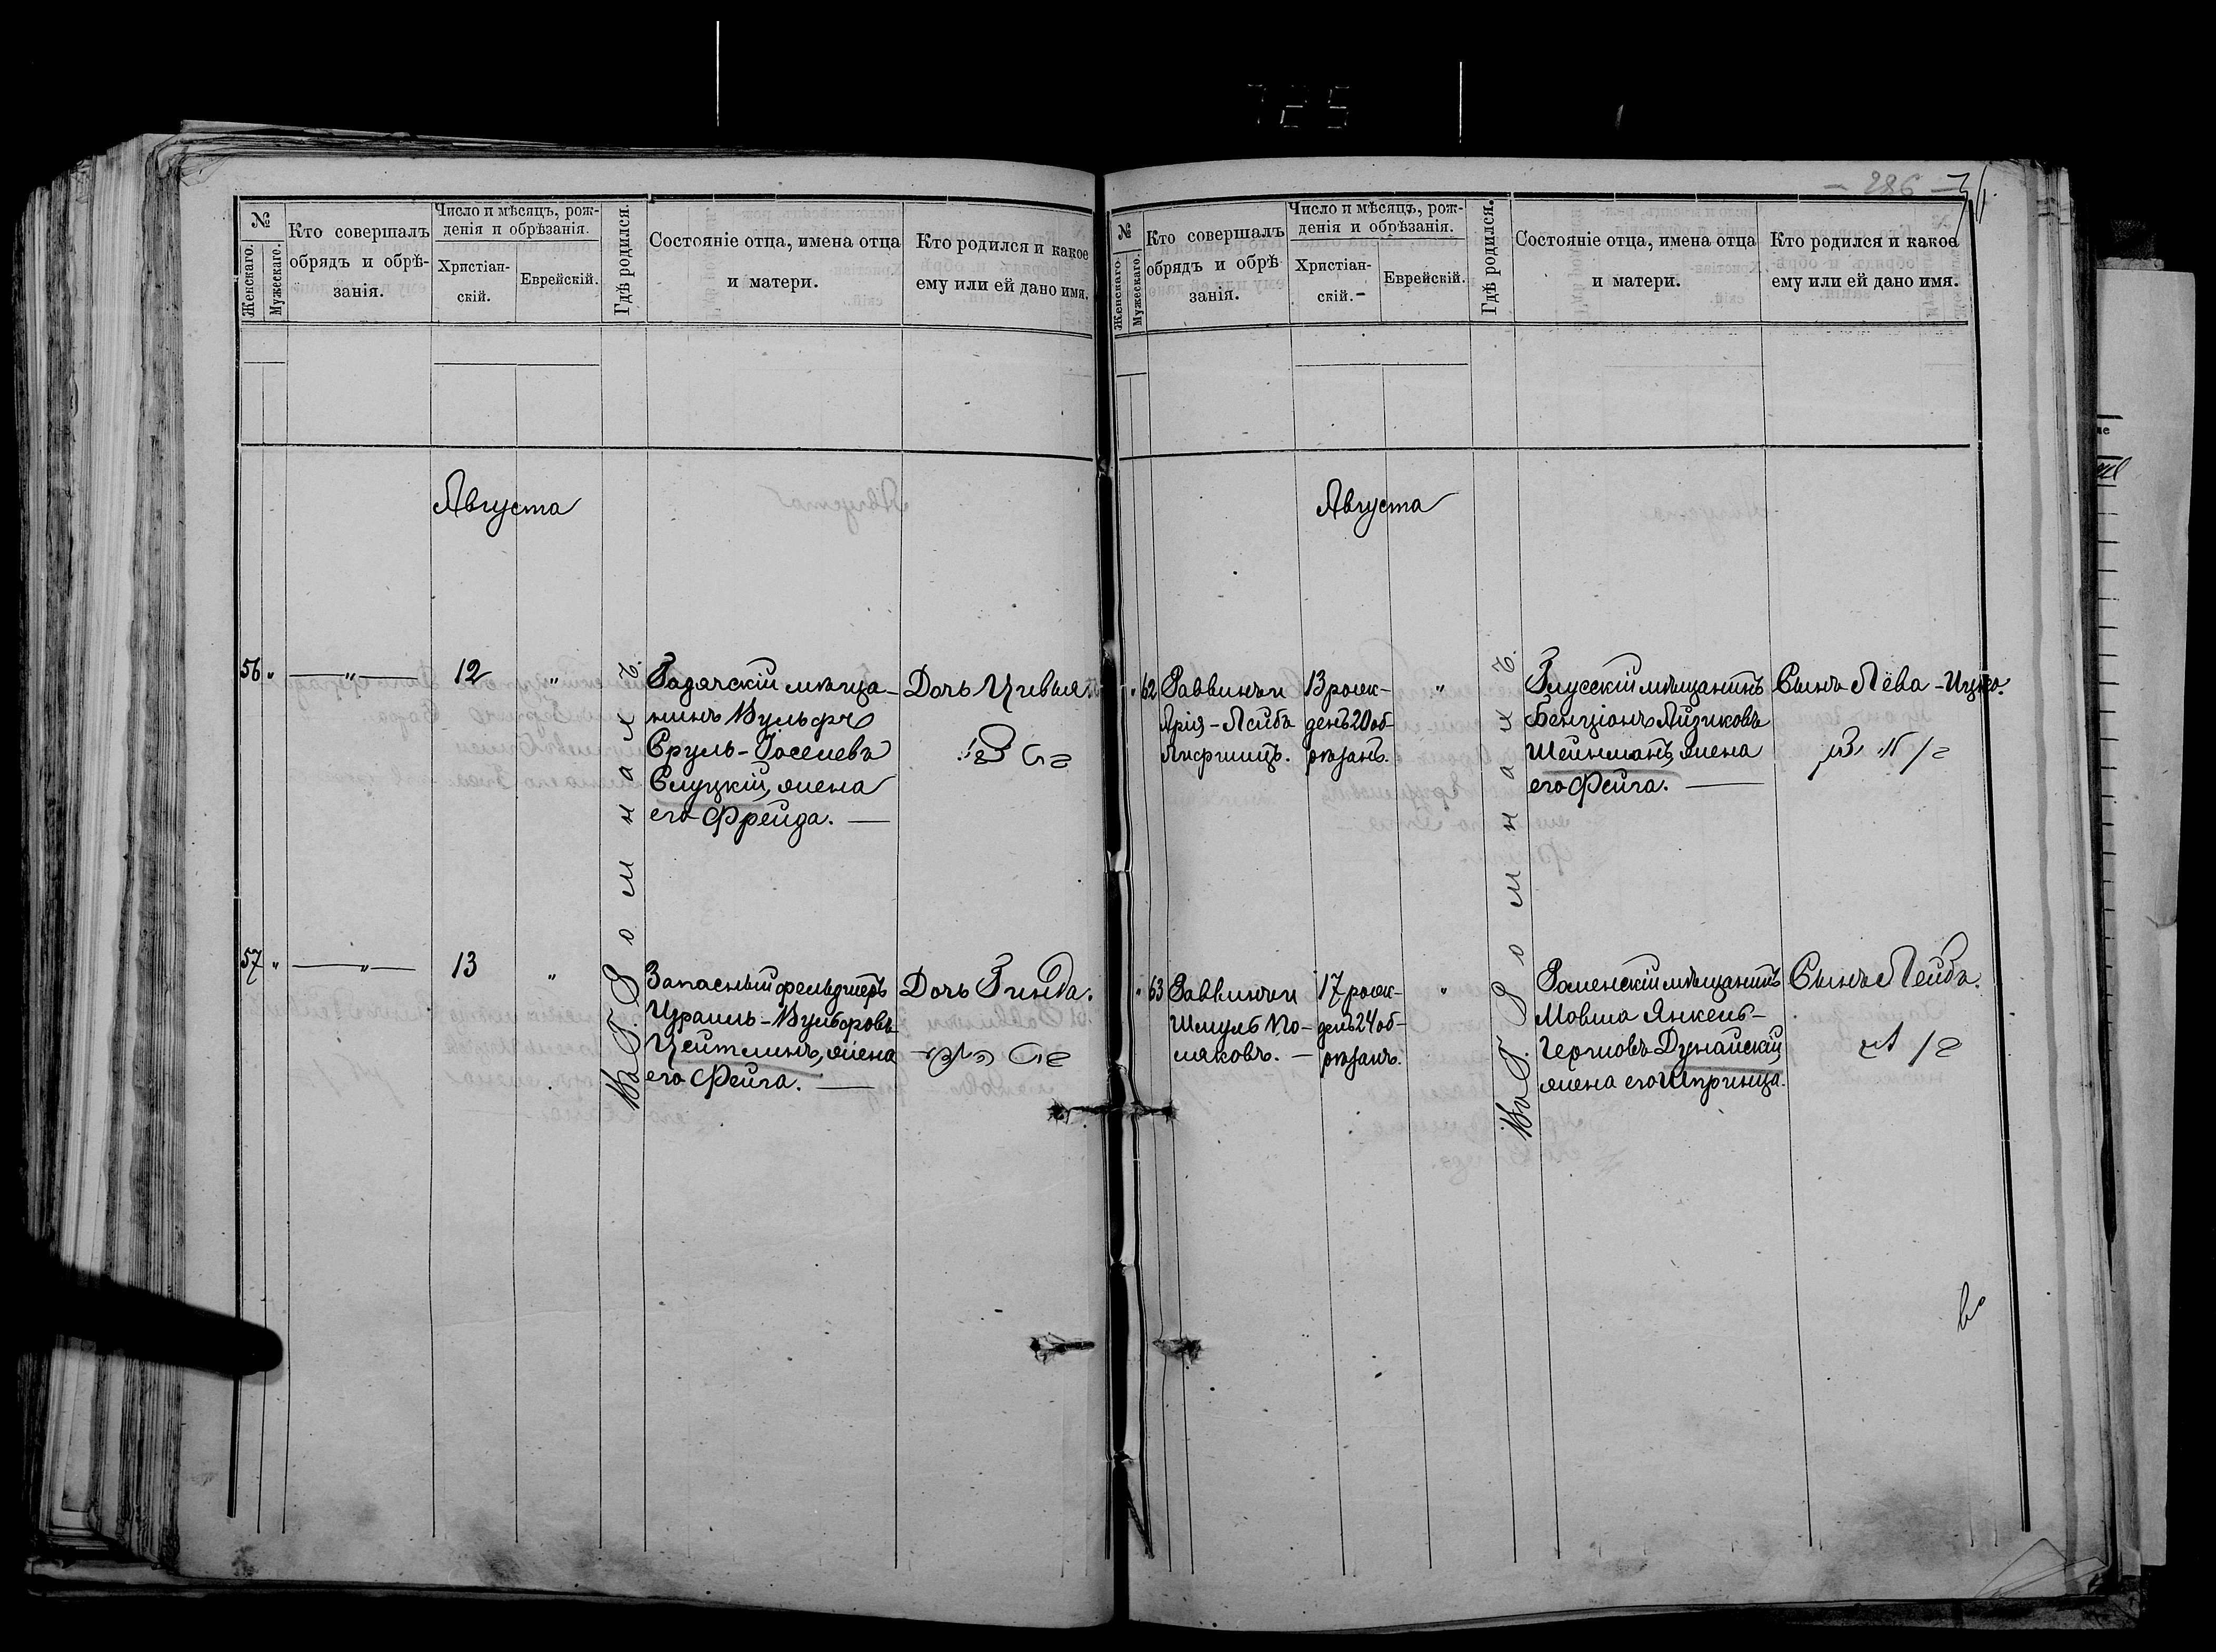 725
№
Женскаго.
Мужескаго.
Кто совершалъ
обрядъ и обрѣ-
занія.
Число и мѣсяцъ, рож-
денія и обрѣзанія.
Христіан-
скій.
Еврейскій.
Гдѣ родился.
Состояніе отца, имена отца
и матери.
Кто родился и какое
ему или ей дано имя.
Августа
56 " —"— 12 "
Гадячскій мѣща-
нинъ Вульфъ
Сруль-Іоселевъ
Слуцкій, жена
его Фрейда. —
Дочь Цивья
57 " —"— 13 "
Запасный фельдшеръ
Израиль-Вульфовъ
Цейтлинъ, жена
его Фейга. —
Дочь Гинда.
Въ Г. Ромнахъ.
— 286 —
№
Женскаго.
Мужескаго.
Кто совершалъ
обрядъ и обрѣ
занія.
Число и мѣсяцъ, рож-
денія и обрѣзанія.
Христіан-
скій.-
Еврейскій.
Гдѣ родился.
Состояніе отца, имена отца
и матери.
Кто родился и какое
ему или ей дано имя.
Августа
" 62 Раввинъ и
Арія-Лейбъ
Лифшицъ.
13 рож-
денъ 20 об-
рѣзанъ.
"
Глусскій мѣщанинъ
Бенціонъ Айзиковъ
Шейнманъ, жена
его Фейга. —
Сынъ Лёва-Ицко.
" 63 Раввинъ и
Шмуль По-
ляковъ. —
17 рож-
денъ 24 об-
рѣзанъ.
"
Роменскій мѣщанинъ
Мовша Янкель-
Герцовъ Дунайскій
жена его Шпринца.
Сынъ Лейба.
Въ Г. Ромнахъ.